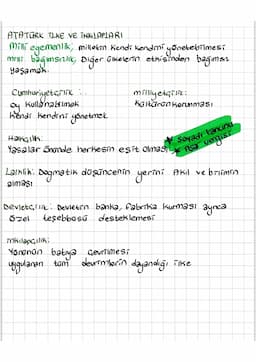 ATATÜRK İLKE VE İNKILAPLARI
Milli egemenlik, milletin kendi kendini yönetebilmesi
bağımsızlık, Diğer ülkelerin etkisinden bağımsız
yaşamak.
Cumhuriyetçilik :
milliyetçilik:
oy kullanabilmek
kültürün korunması
kendi kendini yönetmek
Halkçılık:
Yasalar önünde herkesin eşit olması
* Soyadı kanunu
* Aşar vergisi
Laiklik: Dogmatik düşüncenin yerini Akıl ve bilimin
alması
Devletçilik: Devletin banka, fabrika kurması ayrıca
özel teşebbüsü desteklemesi
inkılapçılık:
Yönünün batıya çevrilmesi
uygulanan tüm devrimlerin dayandığı ilke